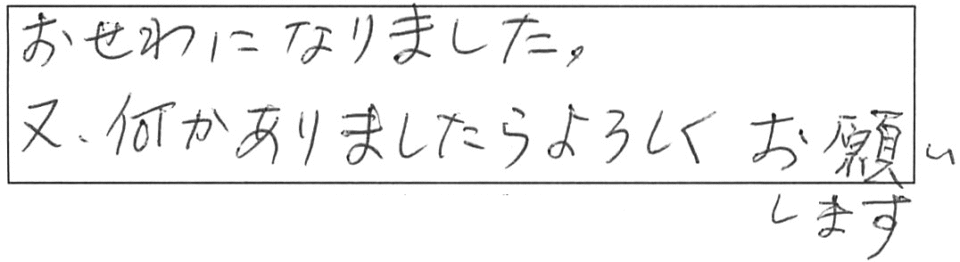 おせわになりました。
又、何かありましたらよろしくお願い
します